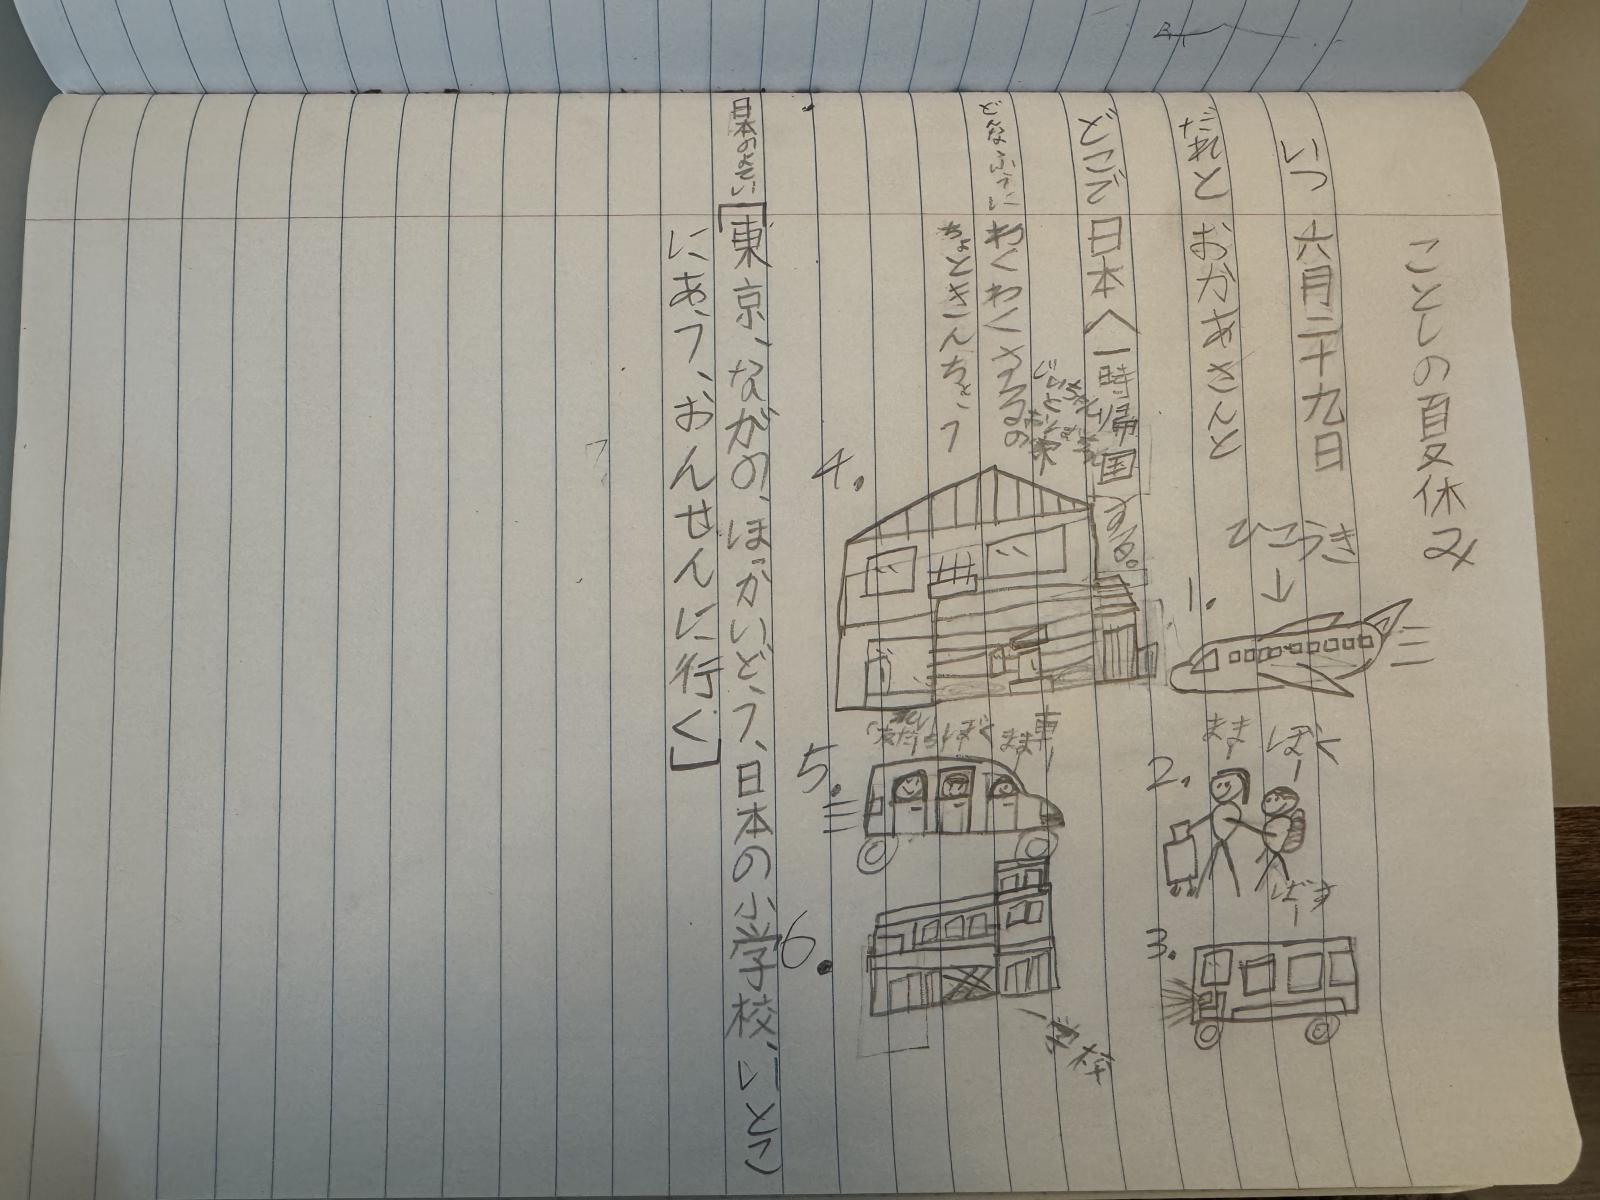 ことしの夏休み
いつ 六月二十九日
だれと おかあさんと
どこで 日本へ一時帰国する。
どんなふうに わくわくするの
ちょときんちょう
日本のよてい「東京、ながの、ほかいどう、日本の小学校、いとこ
にあう、おんせんに行く」
ひこうき
1.
2.
まま
ぼく
3.
ばす
4.
じいちゃんと
家
5.
友だち
ぼく
まま
車
6.
学校